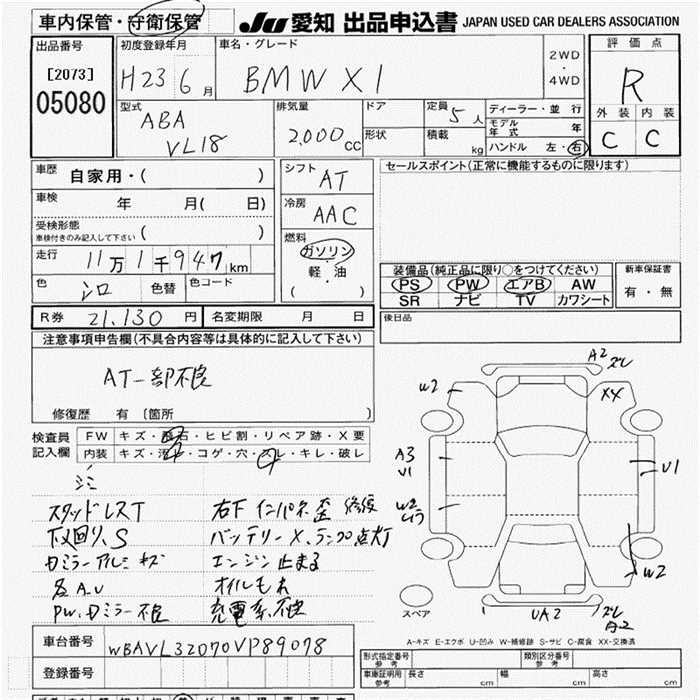 車内保管・守衛保管
JU 愛知 出品申込書 JAPAN USED CAR DEALERS ASSOCIATION
出品番号
[2073]
05080
初度登録年月
H23 6月
車名・グレード
BMW X1
2WD
・
4WD
評価点
R
外装 内装
C C
型式
ABA
VL18
排気量
2,000cc
ドア
形状
定員
5人
積載
kg
ディーラー・並行
モデル年式 年
ハンドル 左・右
車歴
自家用・( )
車検 年 月( 日)
受検形態
車検付きのみ記入して下さい ( )
走行 11万1千947km
色 シロ 色替 色コード
シフト
AT
冷房
AAC
燃料
ガソリン
・
軽・油
( )
セールスポイント(正常に機能するものに限ります)
装備品(純正品に限り○をつけてください)
PS PW エアB AW
SR ナビ TV カワシート
新車保証書
有・無
R券 21,130円 名変期限 月 日
後日品
注意事項申告欄(不具合内容等は具体的に記入して下さい)
AT一部不良
修復歴 有〔箇所 〕
検査員記入欄
FW キズ・飛石・ヒビ割・リペア跡・X要
内装 キズ・汚レ・コゲ・穴・スレ・キレ・破レ
スタッドレスT
下廻り、S
Dミラー アルミ キズ
各A.U
PW、Dミラー不良
右下 インパネ歪 修復
バッテリーX、ランプ点灯
エンジン止まる
オイルもれ
充電系不良
A2 ズレ
W2
XX
A3
V1
U1
W2
W2
UA2
ズレ
A2
スペア
A-キズ E-エクボ U-凹み W-補修跡 S-サビ C-腐食 XX-交換済
車台番号 WBAVL32070VP89078
登録番号
型式指定番号
参考
類別区分番号
参考
車庫証明用
参考
長さ cm 幅 cm 高さ cm